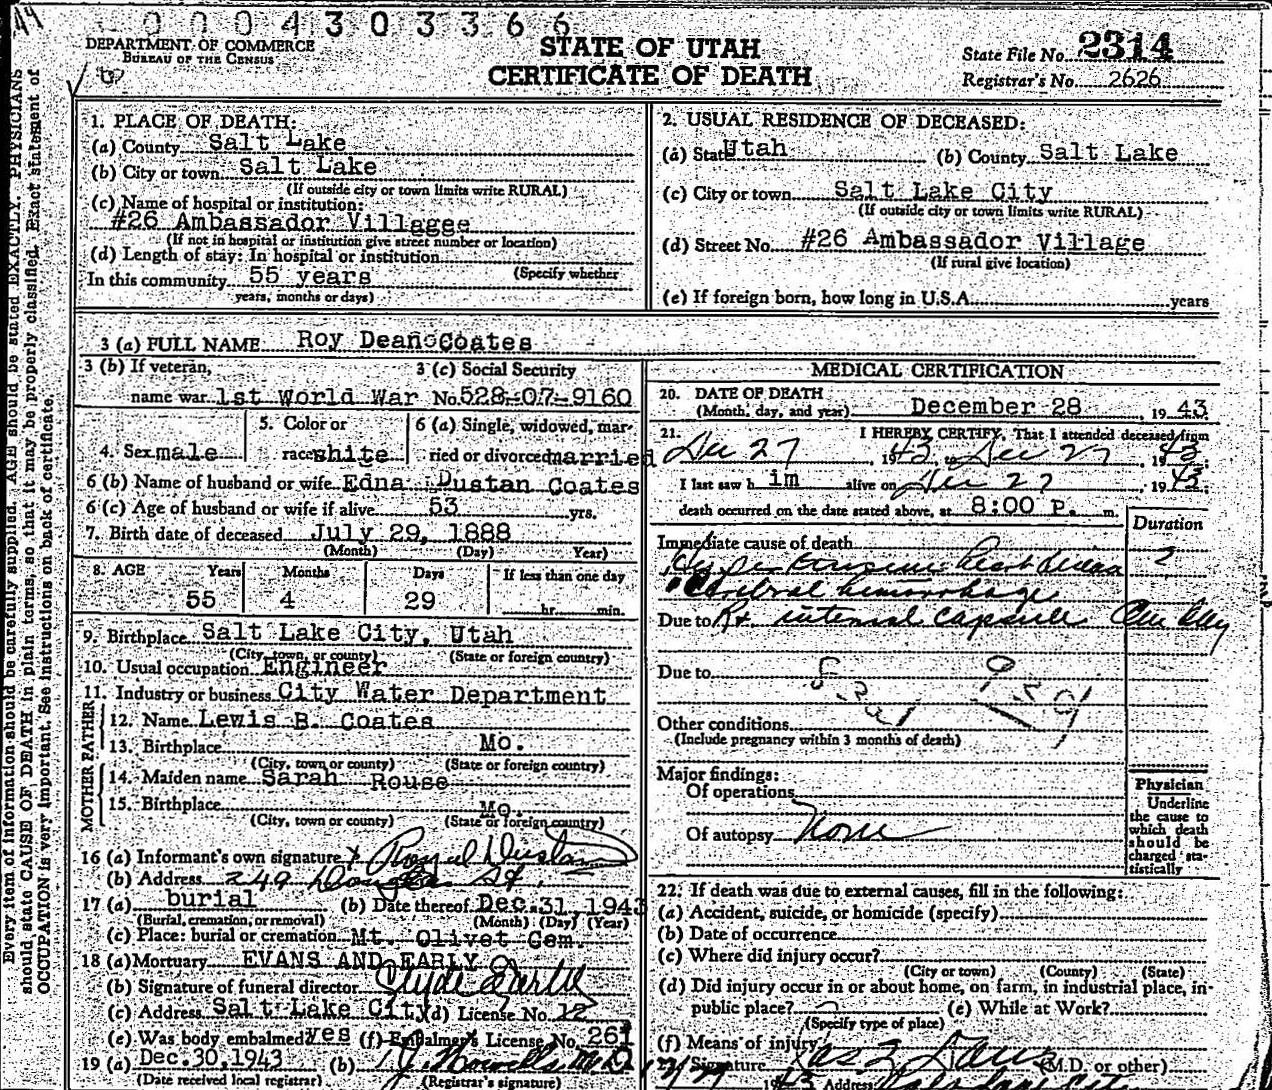 44
0004303366
DEPARTMENT OF COMMERCE
BUREAU OF THE CENSUS
STATE OF UTAH
CERTIFICATE OF DEATH
State File No. 2314
Registrar's No. 2626
Every item of information should be carefully supplied. AGE should be stated EXACTLY. PHYSICIANS
should state CAUSE OF DEATH in plain terms, so that it may be properly classified. Exact statement of
OCCUPATION is very important. See instructions on back of certificate.
1. PLACE OF DEATH:
(a) County Salt Lake
(b) City or town Salt Lake
(If outside city or town limits write RURAL)
(c) Name of hospital or institution:
#26 Ambassador Villagee
(If not in hospital or institution give street number or location)
(d) Length of stay: In hospital or institution
(Specify whether
In this community 55 years
years, months or days)
2. USUAL RESIDENCE OF DECEASED:
(a) State Utah (b) County Salt Lake
(c) City or town Salt Lake City
(If outside city or town limits write RURAL)
(d) Street No. #26 Ambassador Village
(If rural give location)
(e) If foreign born, how long in U.S.A. years
3 (a) FULL NAME Roy Dean Coates
3 (b) If veteran,
name war 1st World War
3 (c) Social Security
No. 528-07-9160
4. Sex male
5. Color or
race white
6 (a) Single, widowed, mar-
ried or divorced married
6 (b) Name of husband or wife Edna Dustan Coates
6 (c) Age of husband or wife if alive 53 yrs.
7. Birth date of deceased July 29, 1888
(Month) (Day) Year)
8. AGE Years Months Days If less than one day
55 4 29 hr. min.
9. Birthplace Salt Lake City, Utah
(City, town, or county) (State or foreign country)
10. Usual occupation Engineer
11. Industry or business City Water Department
FATHER
12. Name Lewis B. Coates
13. Birthplace Mo.
(City, town or county) (State or foreign country)
MOTHER
14. Maiden name Sarah Rouse
15. Birthplace Mo.
(City, town or county) (State or foreign country)
16 (a) Informant's own signature x
(b) Address 249 Douglas St.
17 (a) burial (b) Date thereof Dec. 31, 1943
(Burial, cremation, or removal) (Month) (Day) (Year)
(c) Place: burial or cremation Mt. Olivet Cem.
18 (a) Mortuary EVANS AND EARLY
(b) Signature of funeral director
(c) Address Salt Lake City (d) License No. 12
(e) Was body embalmed? yes (f) Embalmer's License No. 261
19 (a) Dec. 30, 1943 (b) M.D.
(Date received local registrar) (Registrar's signature)
MEDICAL CERTIFICATION
20. DATE OF DEATH
(Month, day, and year) December 28, 1943
21. I HEREBY CERTIFY, That I attended deceased from
Dec 27, 1943 to Dec 27, 1943
I last saw h im alive on Dec 27 1943;
death occurred on the date stated above, at 8:00 P. m.
Duration
Immediate cause of death
heart disease 2
Cerebral hemorrhage
Due to Rt internal capsule One day
Due to
Other conditions
(Include pregnancy within 3 months of death)
Major findings:
Of operations
Of autopsy None
Physician
Underline
the cause to
which death
should be
charged sta-
tistically
22. If death was due to external causes, fill in the following:
(a) Accident, suicide, or homicide (specify)
(b) Date of occurrence
(c) Where did injury occur?
(City or town) (County) (State)
(d) Did injury occur in or about home, on farm, in industrial place, in
public place? (e) While at Work?
(Specify type of place)
(f) Means of injury
Signature (M.D. or other)
1943 Address